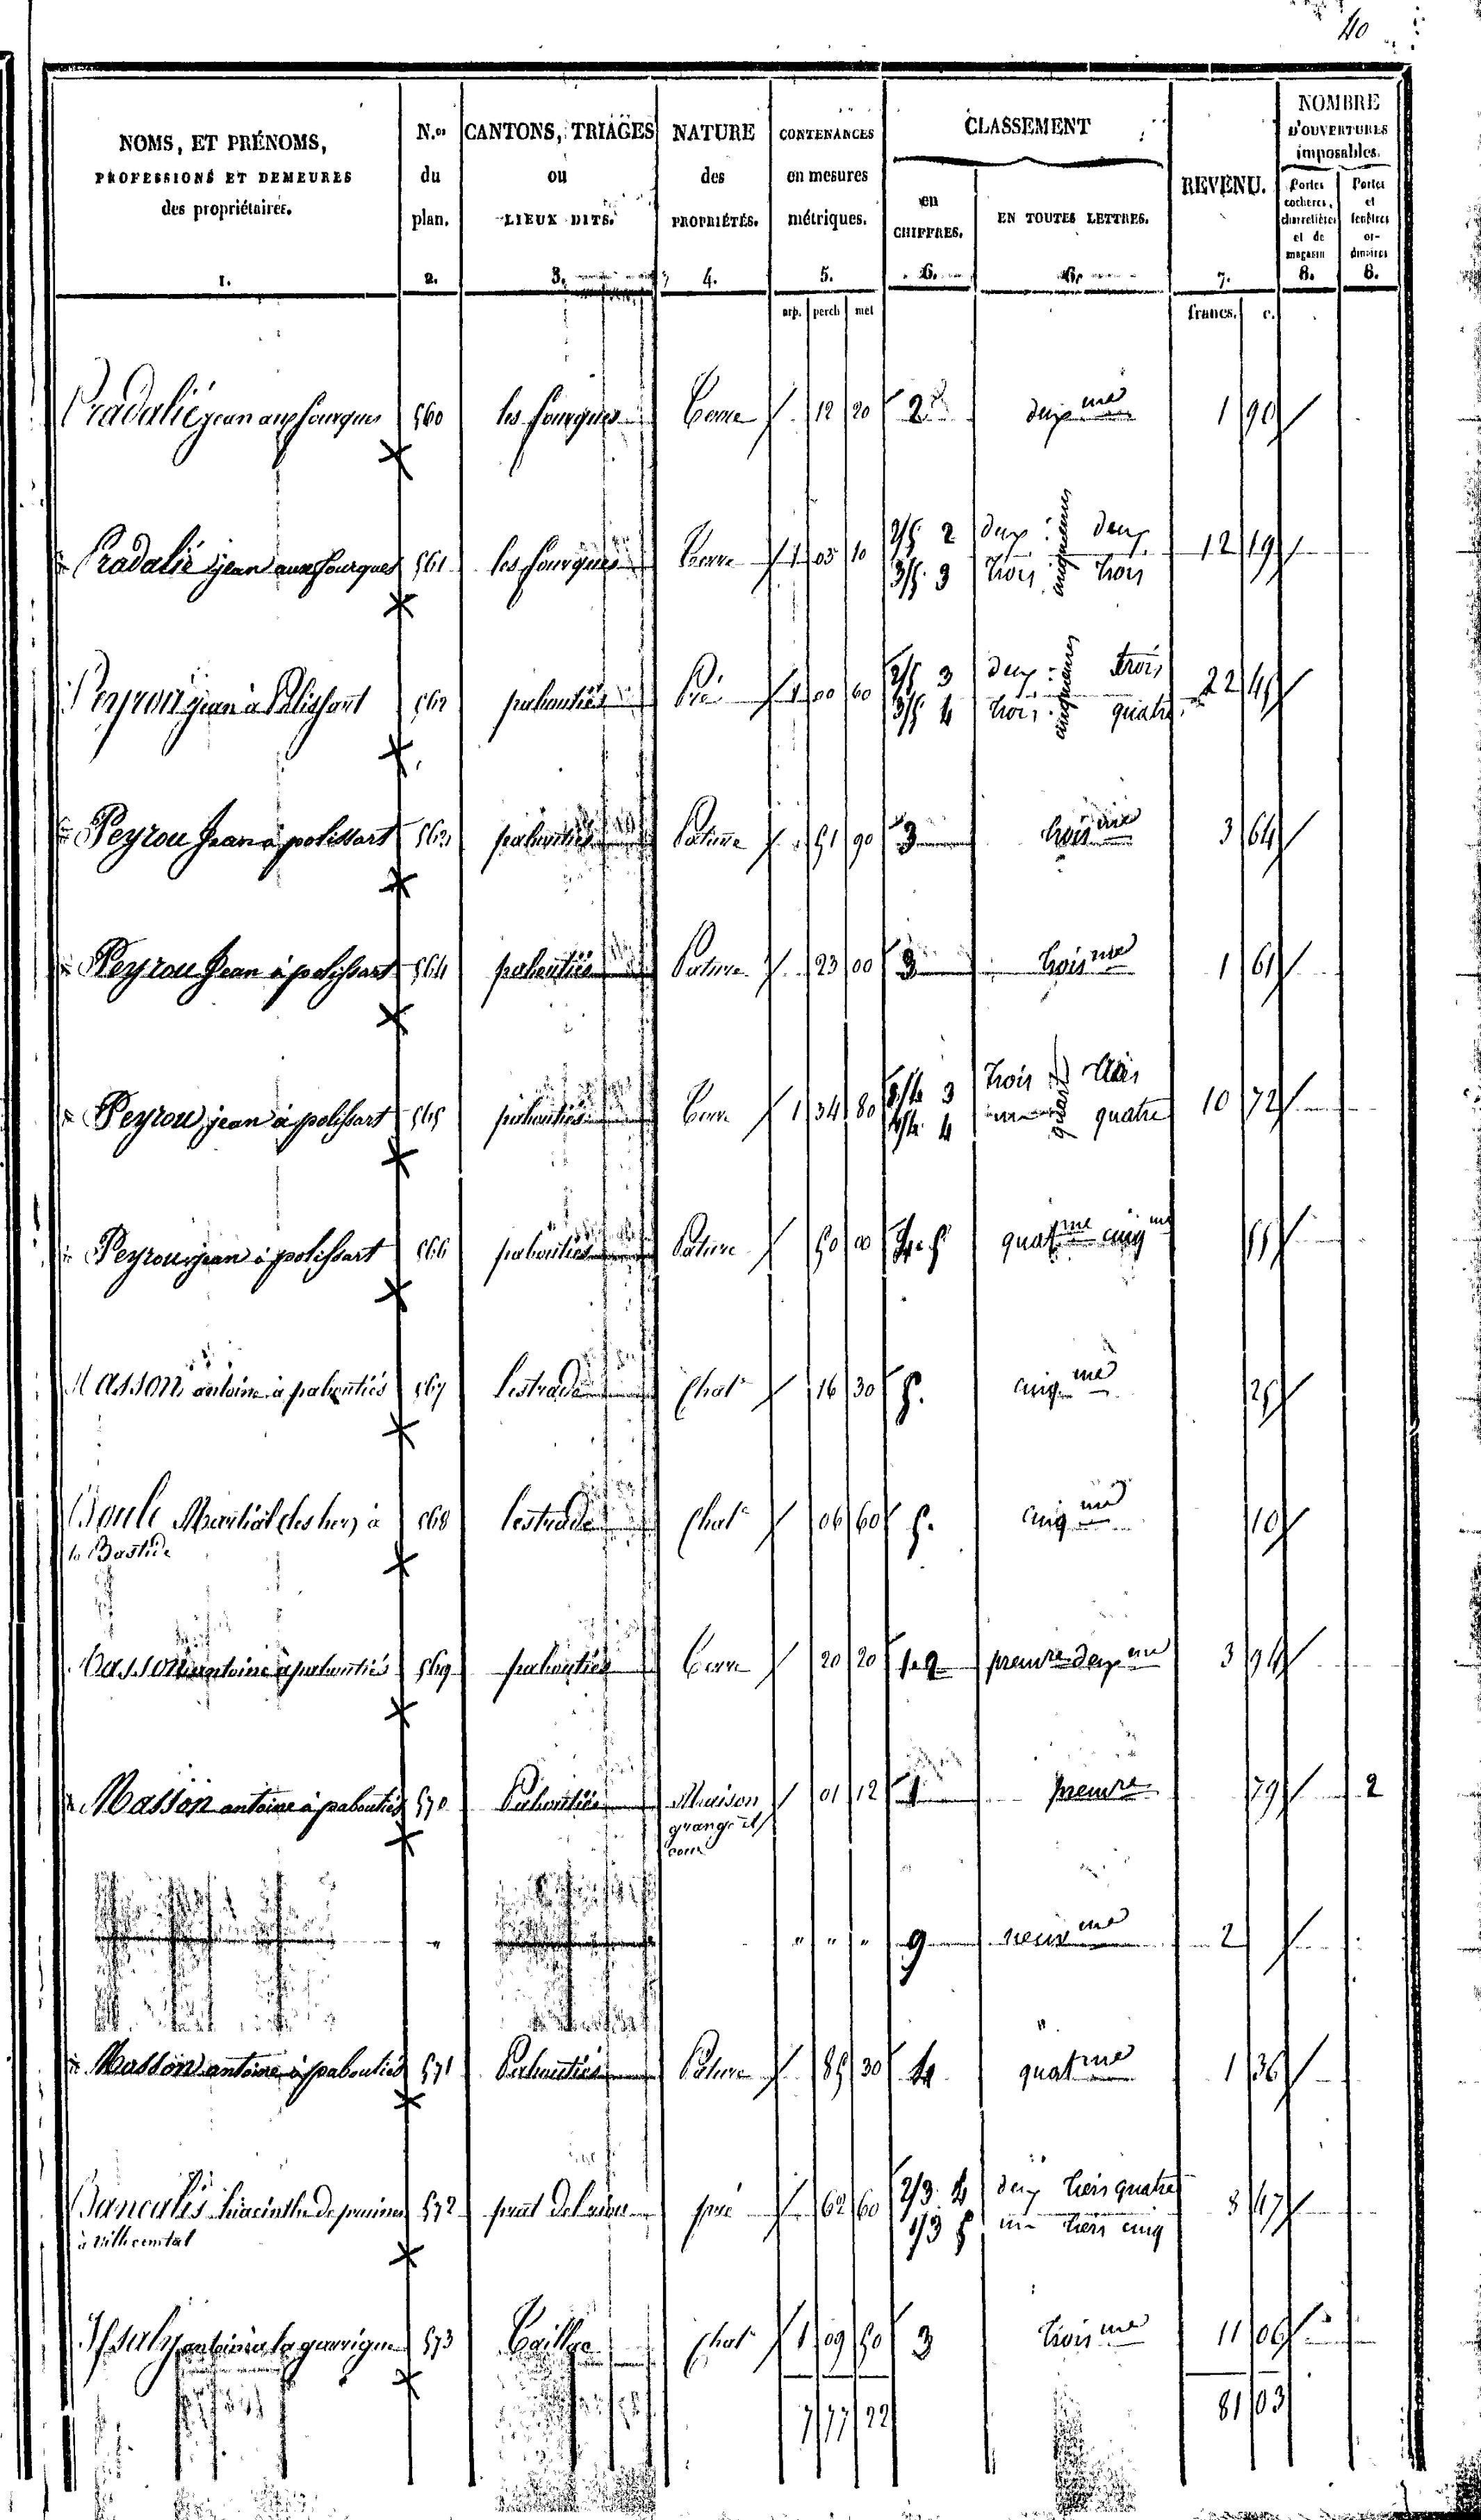 40
NOMS, ET PRÉNOMS, PROFESSIONS ET DEMEURES des propriétaires. 1.
N.os du plan. 2.
CANTONS, TRIAGES ou LIEUX DITS. 3.
NATURE des PROPRIÉTÉS. 4.
CONTENANCES en mesures métriques. 5.
CLASSEMENT
en CHIFFRES. 6.
EN TOUTES LETTRES.
REVENU. 7.
NOMBRE D'OUVERTURES imposables.
Portes cocheres, charretières et de magasin 8.
Portes et fenêtres ordinaires 8.
arp. perch met francs. c.
Pradalié jean aux fourques 560 les fourques terre 12 20 2 deux me 1 90
Pradalié jean aux fourques 561 les fourques terre 1 05 10 2/5 2 deux cinquiemes deux 12 19
3/5 3 trois trois
Peyrou jean à Polissart 562 pabouties Pré 1 00 60 2/5 3 deux cinquiemes trois 22 45
3/5 4 trois quatre
Peyrou Jean à polissart 563 pabouties Pature 51 90 3 trois me 3 64
Peyrou Jean à polissart 564 pabouties Pature 23 00 3 trois me 1 61
Peyrou jean à polissart 565 pabouties terre 1 34 80 3/4 3 trois quarts trois 10 72
1/4 4 un quatre
Peyrou jean à polissart 566 pabouties Pature 50 00 4. 5 quat me cinq me 55
Masson antoine à pabouties 567 lestrade Chat 16 30 5. cinq me 25
Martial (les hers) à 568 lestrade Chat 06 60 5. cinq me 10
la Bastide
Masson antoine à pabouties 569 pabouties terre 20 20 1. 2 premre deux me 3 94
Masson antoine à pabouties 570 Pabouties Maison 01 12 1 premre 79 2
grange et
cour
" " " " 9 neuv me 2
Masson antoine à pabouties 571 Pabouties Pature 85 30 4 quat me 1 36
hiacinthe de 572 pré 62 60 2/3 4 deux tiers quatre 8 47
à 1/3 5 un tiers cinq
573 Chat 1 09 50 3 trois me 11 06
7 77 22 81 03